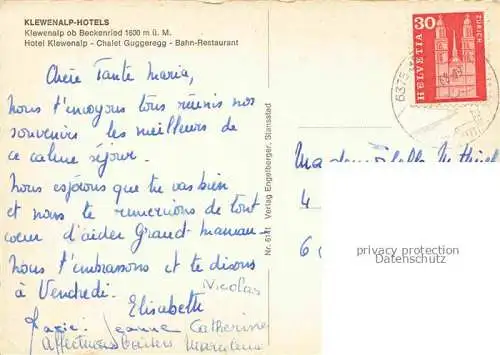 KLEWENALP-HOTELS
Klewenalp ob Beckenried 1600 m ü. M.
Hotel Klewenalp - Chalet Guggeregg - Bahn-Restaurant
Chère Tante Maria,
Nous t'envoyons tous réunis nos
souvenirs les meilleurs de
ce calme séjour.
Nous espérons que tu vas bien
et nous te remercions de tout
coeur d'aider Grand-maman.
Nous t'embrassons et te disons
à Vendredi.
Nicolas
Elisabeth
Jeanne Catherine
Affectueux baisers Marylène
Nr. 6141 Verlag Engelberger, Stansstad
30
HELVETIA
ZÜRICH
6375
Mademoiselle M.
4
6
privacy protection
Datenschutz